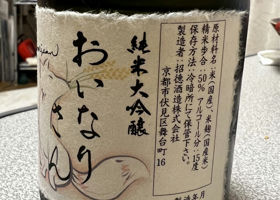 原材料名：米（国産）、米麹（国産米）
精米歩合：50％ アルコール分：15度
保存方法：冷暗所にて保管下さい。
製造者：招德酒造株式会社
京都市伏見区舞台町16
純米大吟醸
おいなり
さん
年月